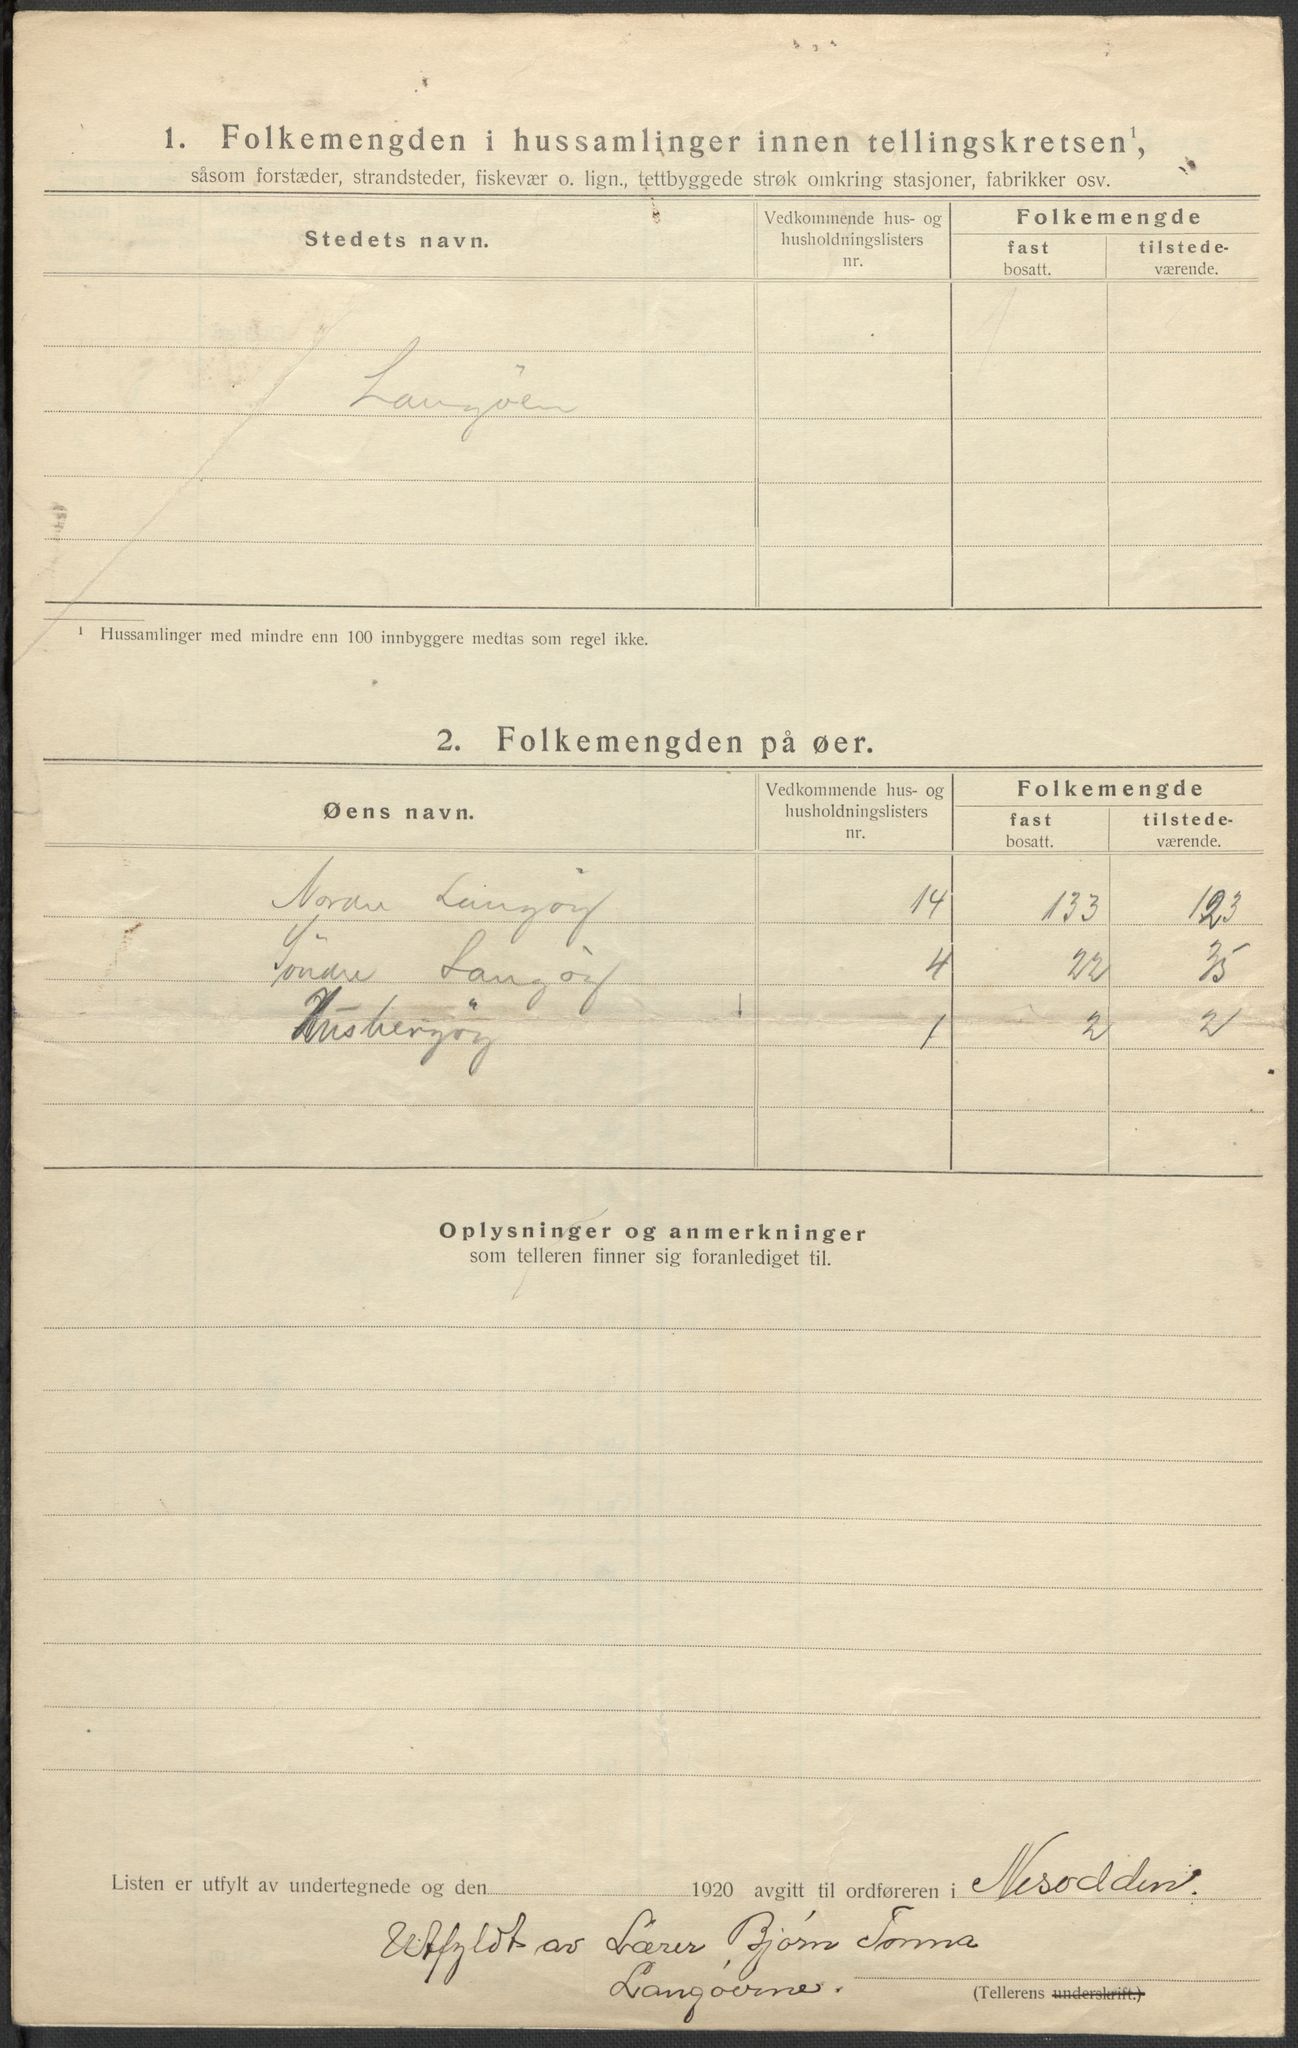 1. Folkemengden i hussamlinger innen tellingskretsen¹,
såsom forstæder, strandsteder, fiskevær o. lign., tettbyggede strøk omkring stasjoner, fabrikker osv.
Stedets navn.
Vedkommende hus- og husholdningslisters nr.
Folkemengde
fast bosatt.
tilstede-værende.
Langöen
¹ Hussamlinger med mindre enn 100 innbyggere medtas som regel ikke.
2. Folkemengden på øer.
Øens navn.
Vedkommende hus- og husholdningslisters nr.
Folkemengde
fast bosatt.
tilstede-værende.
Nordre Langöy 14 133 123
Söndre Langöy 4 22
Husbergöy 1 2 2
Oplysninger og anmerkninger
som telleren finner sig foranlediget til.
Listen er utfylt av undertegnede og den 1920 avgitt til ordføreren i Nesodden.
Utfyldt av Lærer Bjørn Tonna
Langöerne.
(Tellerens underskrift.)